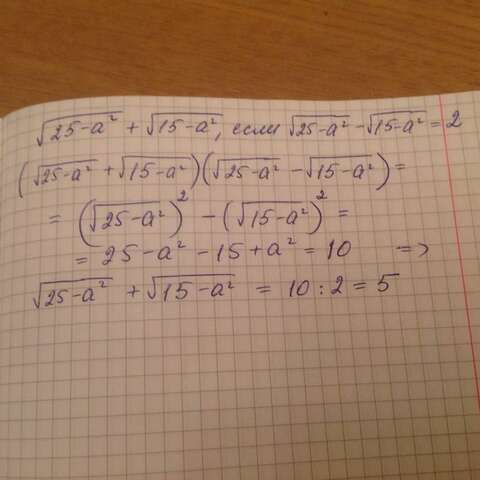 √25-a² + √15-a², если √25-a² - √15-a² = 2
(√25-a² + √15-a²)(√25-a² - √15-a²) =
= (√25-a²)² - (√15-a²)² =
= 25-a² - 15+a² = 10 =>
√25-a² + √15-a² = 10 : 2 = 5